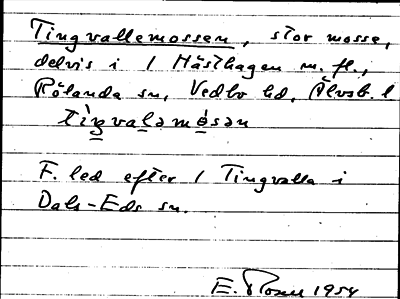 Tingvallemossen, stor mosse,
delvis i 1 Hästhagen m. fl.,
Rölanda sn, Vedbo hd, Älvsb. l
tìŋvaləmós̩ən
F. led efter 1 Tingvalla i
Dals-Eds sn.
E. Rosell 1954